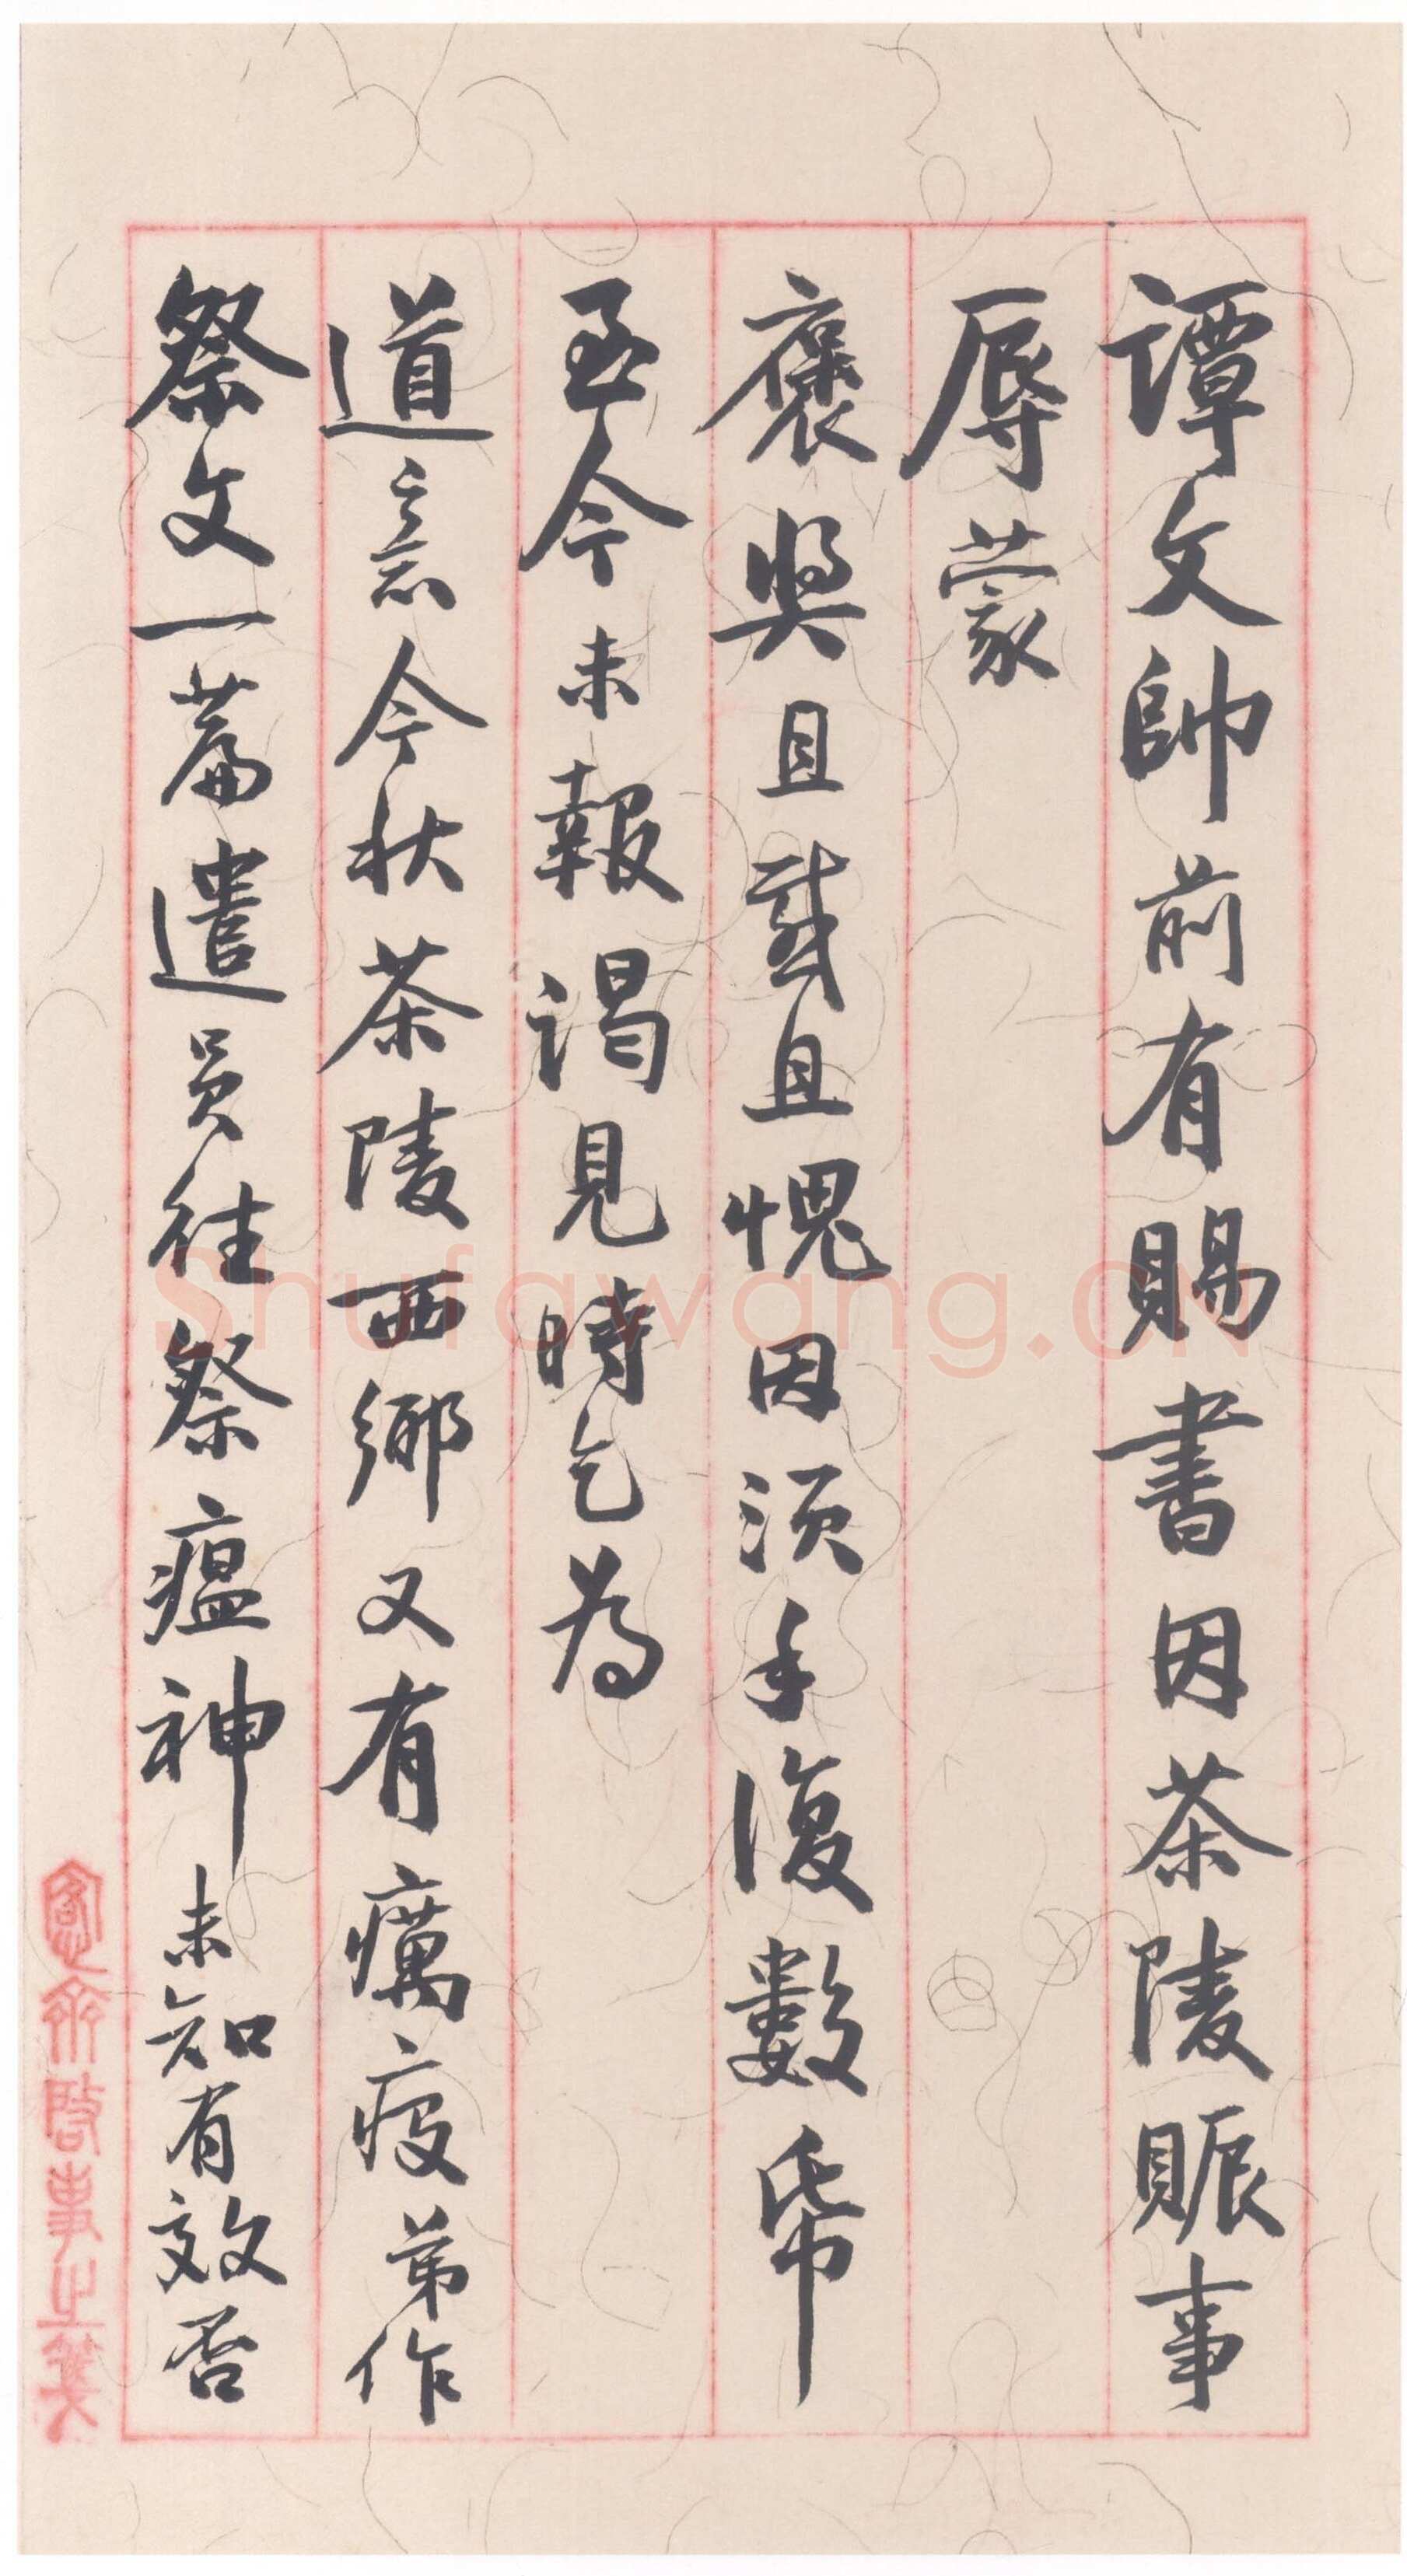 譚文帥前有賜書因茶陵賑事
辱蒙
褒奬且感且愧因須手復數帋
至今未報謁見時乞為
道意今秋茶陵西鄉又有癘疫弟作
祭文一篇遣員往祭瘟神未知有效否
愙齋啓事之箋
Shufawang.CN